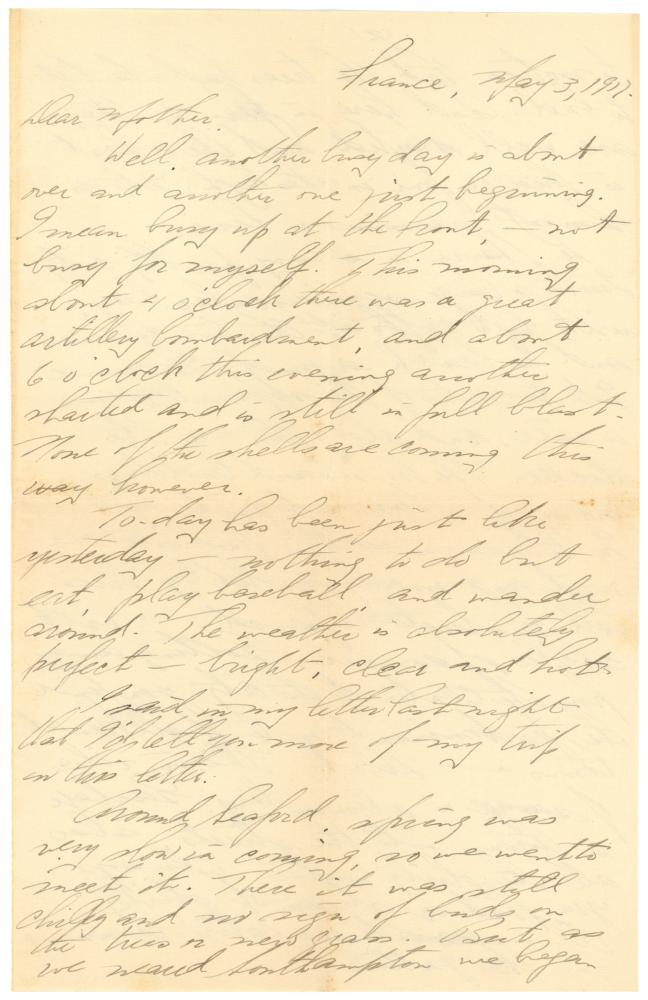 France, May 3, 1917.
Dear Mother,
Well, another busy day is about
over and another one just beginning.
I mean busy up at the front, — not
busy for myself. This morning
about 4 o'clock there was a great
artillery bombardment, and about
6 o'clock this evening another
started and is still in full blast.
None of the shells are coming this
way however.
To-day has been just like
yesterday — nothing to do but
eat, play baseball, and wander
around. The weather is absolutely
perfect — bright, clear and hot.
I said in my letter last night
that I'd tell you more of my trip
in this letter.
Around Seaford, spring was
very slow in coming, so we went to
meet it. There it was still
chilly and no sign of buds on
the trees or new grass. But as
we neared Southampton we began